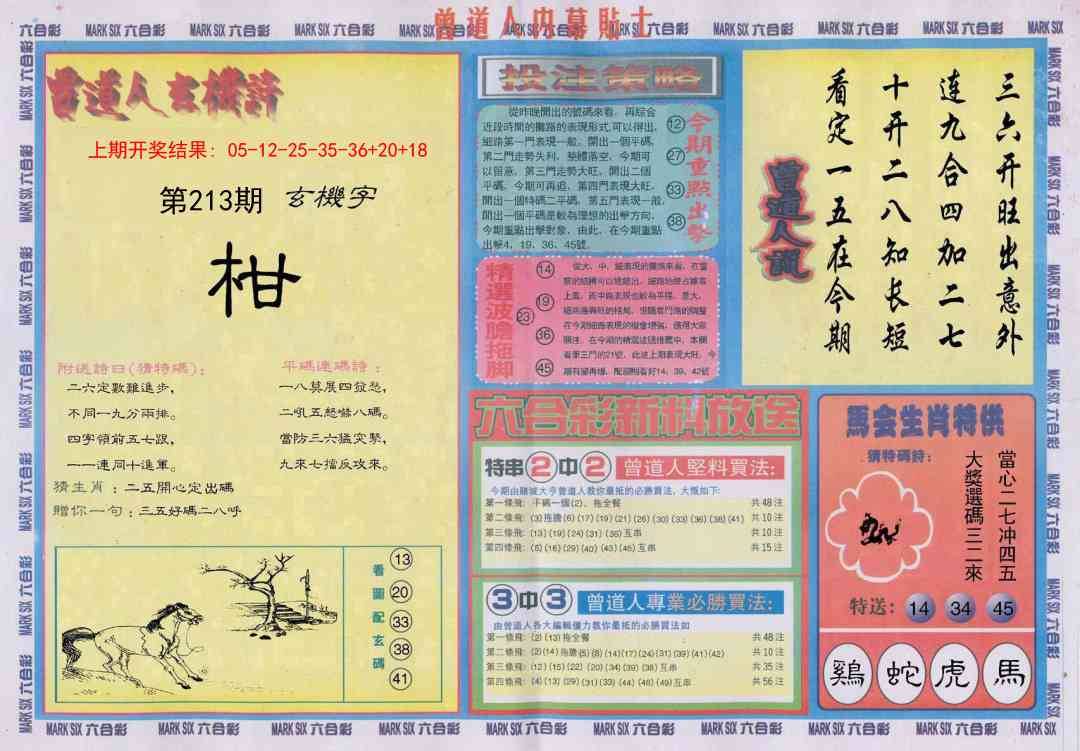 曾道人内幕貼士
六合彩 MARK SIX 六合彩 MARK SIX 六合彩 MARK SIX 六合彩 MARK SIX 六合彩
曾道人玄機詩
上期开奖结果: 05-12-25-35-36+20+18
第213期 玄機字
柑
附送詩曰(猜特碼):
二六定數難進步,
不同一九分兩排。
四字領前五七跟,
一一連同十進軍。
平碼連碼詩:
一八莫展四發愁,
二吼五怒
八碼。
當防三六猛突擊,
九來七擋反攻來。
猜生肖:二五開心定出碼
贈你一句:三五好碼二八呼
看圖配玄碼
13
20
33
38
41
投注策略
從昨晚開出的號碼來看,再綜合
近段時間的攤路的表現形式,可以得出,
細路第一門表現一般,開出一個平碼,
第二門走勢失利,整體落空,今期可
以留意,第三門走勢大旺,開出二個
平碼,今期可再追,第四門表現大旺,
開出一個特碼二平碼,第五門表現一般,
開出一個平碼是較為理想的出擊方向,
今期重點出擊對象,由此,在今期重點
出擊4、19、36、45號。
今期重點出擊
12
27
33
38
精選波膽拖腳
14
19
23
36
45
六合彩新料放送
特串2中2 曾道人堅料買法:
今期由賭城大亨曾道人教你最抵的必勝買法,大概如下:
第一條飛: 平碼一個(2)、拖全餐 共48注
第二條飛: (3)拖膽(6)(17)(19)(21)(26)(30)(33)(36)(38)(41) 共10注
第三條飛: (13)(19)(24)(31)(36)互串 共10注
第四條飛: (5)(16)(29)(40)(43)(45)互串 共15注
3中3 曾道人專業必勝買法:
由曾道人各大編輯優力教你最抵的必勝買法如
第一條飛: (2)(13)拖全餐 共48注
第二條飛: (2)(14)拖膽(5)(8)(14)(17)(24)(31)(39)(41)(42) 共10注
第三條飛: (12)(15)(22)(20)(34)(39)(38)互串 共35注
第四條飛: (4)(13)(29)(31)(33)(44)(48)(49)互串 共56注
三六开旺出意外
连九合四加二七
十开二八知长短
看定一五在今期
曾道人說
馬会生肖特供
猜特碼詩:
當心二七冲四五
大獎選碼三二來
特送: 14 34 45
鷄 蛇 虎 馬
MARK SIX 六合彩 MARK SIX 六合彩 MARK SIX 六合彩 MARK SIX 六合彩